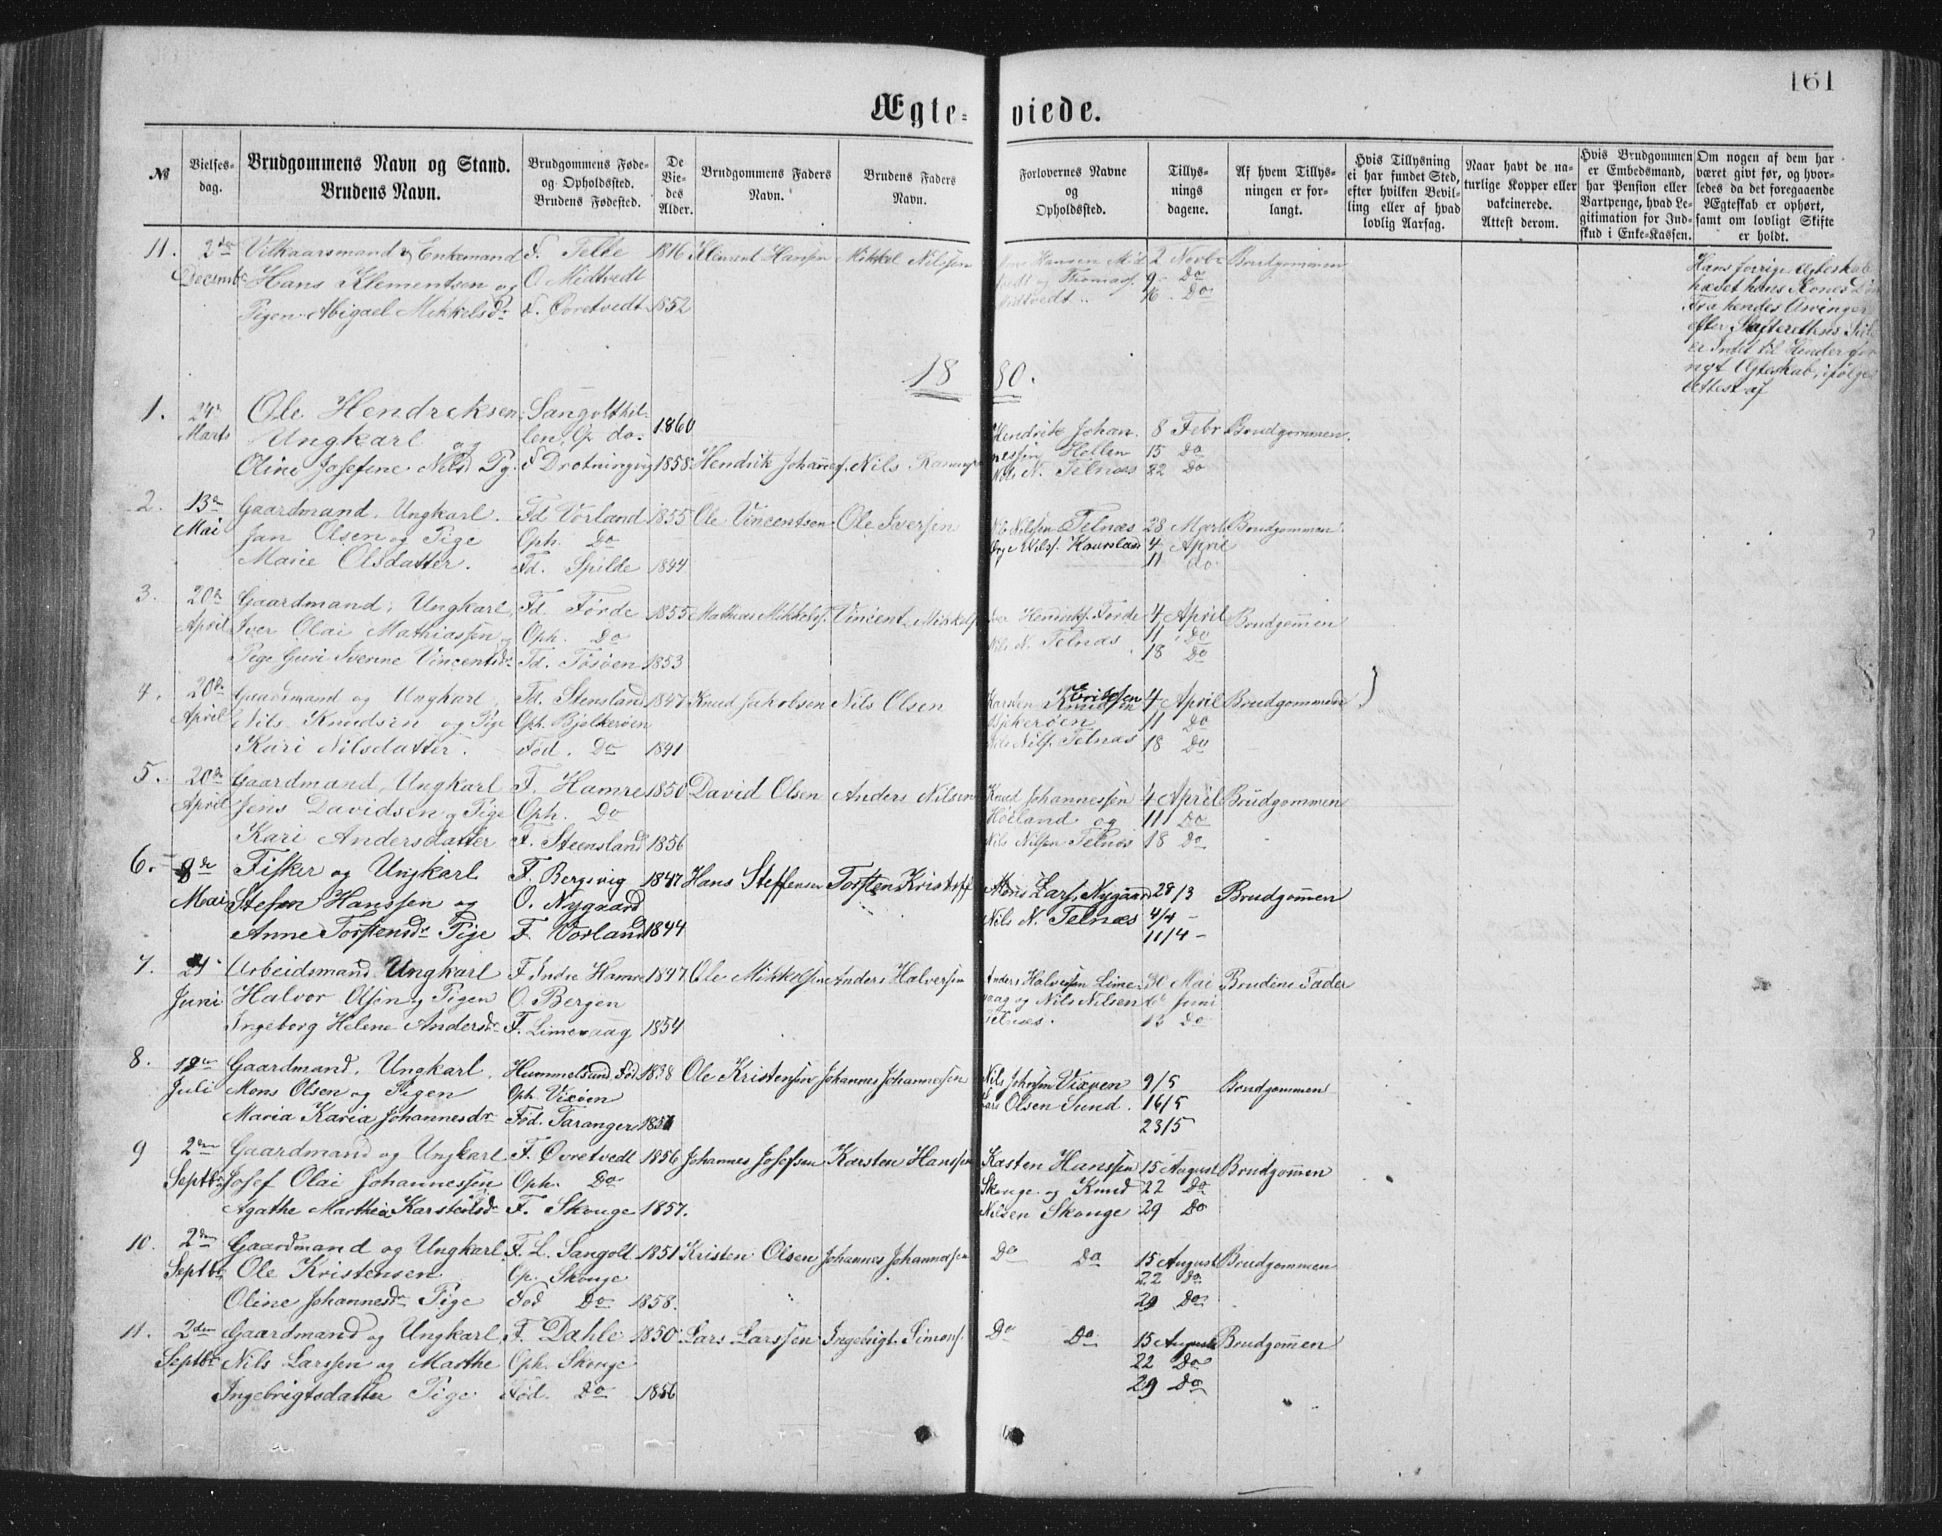 161
Ægte- viede.
№ Vielses-dag. Brudgommens Navn og Stand. Brudens Navn. Brudgommens Føde- og Opholdssted. Brudens Fødested. De Vie-des Alder. Brudgommens Faders Navn. Brudens Faders Navn. Forlovernes Navne og Opholdssted. Tillys-nings dagene. Af hvem Tillys-ningen er for-langt. Hvis Tillysning ei har fundet Sted, efter hvilken Bevil-ling eller af hvad lovlig Aarsag. Naar havt de na-turlige Kopper eller vakcinerede. Attest derom. Hvis Brudgommen er Embedsmand, har Pension eller Vartpenge, hvad Le-gitimation for Ind-skud i Enke-Kassen. Om nogen af dem har været gift før, og hvor-ledes da det foregaaende Ægteskab er ophørt, samt om lovligt Skifte er holdt.
11. 2den Vilkaarsmand & Enkemand F. Telle 1816 Klement Hansen Mikkel Nilssen Hansen 2 Novbr Brudgommen Hans forrige Ægteskab
Decembr Hans Klementsen og O. Midtvedt og Thomas 9 Do hævet hans Kones
Pigen Abigael Mikkelsdr F. Øvretvedt 1852 Midtvedt 16 Do Fra hendes Arvinger
efter Skifterettens
er Intet til Hinder for
nyt Ægteskab, ifølge
Attest af
18 80.
1. 24de Ole Hendriksen Sangolthel- 1860 Hendrik Johan- 8 Febr Brudgommen.
Marts Ungkarl og len, O. do. nessen Hellen 15 Do
Oline Josefine Nilsd Pg. F Drotningvig 1858 Hendrik Johannes. Nils Nils N. Telnæs 22 Do
2. 13de Gaardmand, Ungkarl. Fd Vorland 1855 Ole Vincentsen Ole Iversen Nils Nilssen Telnæs 28 Marts Brudgommen
Mai Jan Olsen og Pige Oph. Do Nils. 4 April
Marie Olsdatter. Fd. Spilde 1844 11 Do
3. 20de Gaardmand, Ungkarl, Fd. Førde 1855 Mathias Mikkels. Vincent Mikkels Iver Henriks. Førde 4 April Brudgommen
April Iver Olai Mathiassen og Oph. Do Nils N. Telnæs 11 Do
Pige Guri Iverine Vincentsdr Fd. Tøsøen 1853 18 Do
4. 20de Gaardmand og Ungkarl Fd. Stensland 1847 Knud Jakobsen Nils Olsen Karsten 4 April Brudgommen
April Nils Knudsen og Pige Oph. Bjelkerøen 11 Do
Kari Nilsdatter. Fød. Do 1841 Nils Nils. Telnæs 18 Do
5. 20de Gaardmand, Ungkarl F. Hamre 1850 David Olsen Anders Nilsen Knud Johannessen 4 April Brudgommen
April Jens Davidsen og Pige Oph. Do Høiland og 11 Do
Kari Andersdatter F. Steensland 1856 Nils Nilsen Telnæs 18 Do
6. 8de Fisker og Ungkarl F. Bergsvig 1847 Hans Steffensen Torsten Kristoff Mons Lars. Nygaard 28/3 Brudgommen
Mai Stefen Hanssen og O. Nygaard Nils N. Telnæs 4/4 -
Anne Torstensdr Pige F. Vorland 1844 11/4 -
7. 24 Arbeidsmand Ungkarl F. Indre Hamre 1847 Ole Mikkelsen Anders Halversen Anders Halvorsen Lime- 30 Mai Brudens Fader
Juni Halvor Olsen og Pigen O. Bergen vaag og Nils Nilsen 6 Juni
Ingeborg Helene Andersdr F. Limevaag 1854 Telnæs. 13 Do
8. Gaardmand, Ungkarl Hummelsund Fød 1838 Ole Kristensen Johannes Johannessen Nils Johnsen Vixøen 9/5 Brudgommen
Juli Mons Olsen og Pigen Oph. Vixøen Lars Olsen Sund. 16/5
Maria Karia Johannesdr Fød. Taranger 23/5
9 2den Gaardmand og Ungkarl F. Øvretvedt 1856 Johannes Josefsen Karsten Hanssen Kasten Hanssen 15 August Brudgommen
Septbr Josef Olai Johannessen Oph. Do Skouge og Knud 22 Do
Agathe Marthea Karstensdr F. Skouge 1857. Nilsen Skouge 29 Do
10. 2den Gaardmand og Ungkarl F. L. Sangolt 1851 Kristen Olsen Johannes Johannessen Do Do 15 August Brudgommen
Septbr Ole Kristensen Op. Skouge 22 Do
Oline Johannesdr Pige Fød Do 1858. 29 Do
11. 2den Gaardmand og Ungkarl F. Dahle 1850 Lars Larssen Ingebrigt Simons. Do Do 15 August Brudgommen
Septbr Nils Larssen og Marthe Oph. Skouge 22 Do
Ingebrigtsdatter Pige Fød. Do 1856 29 Do